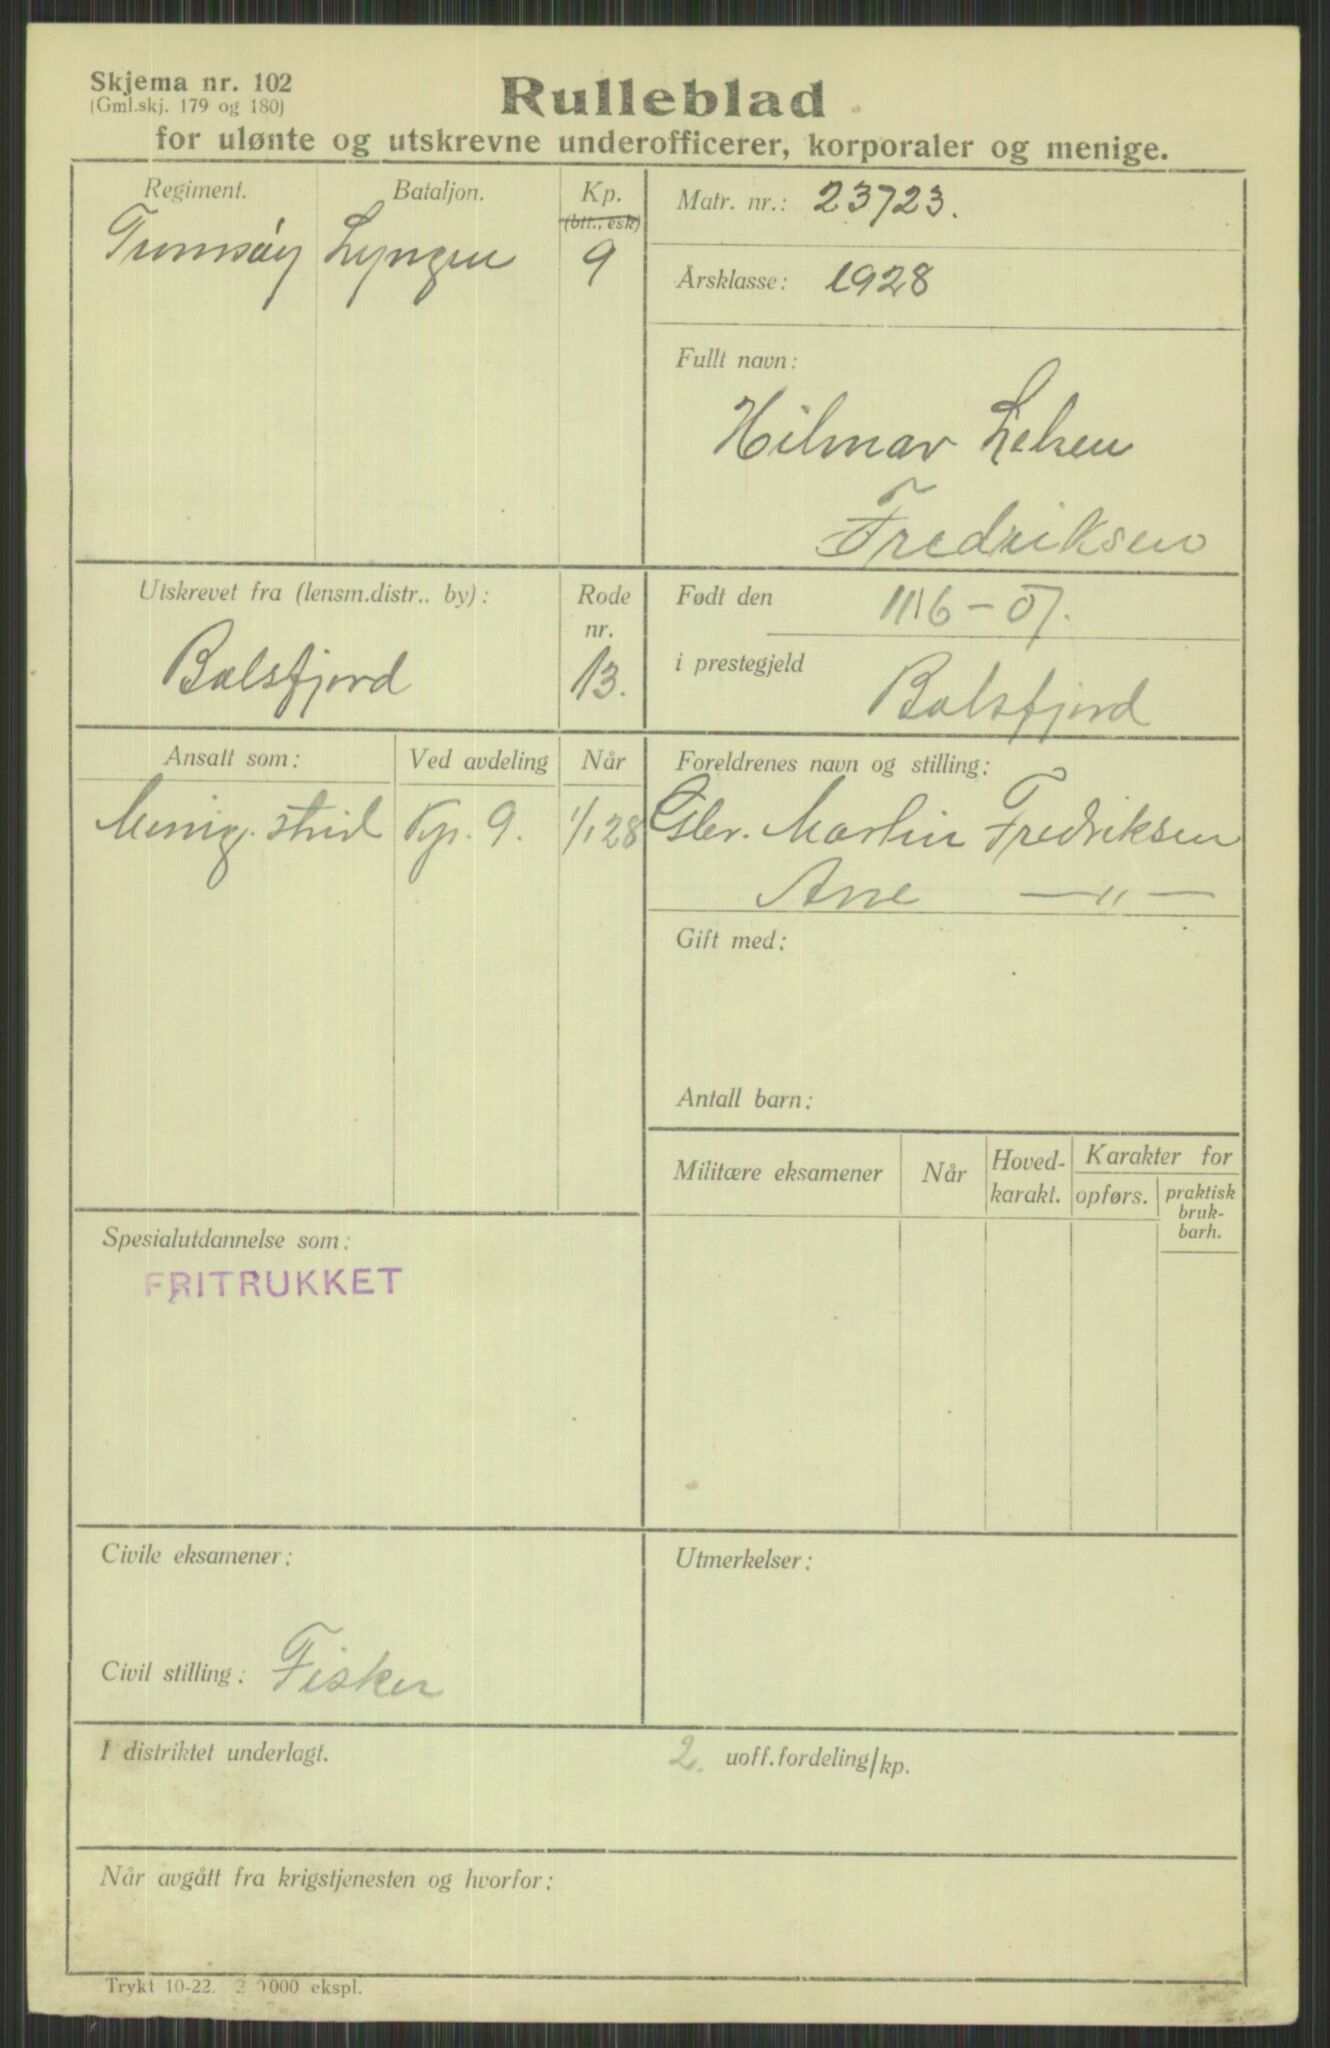 Skjema nr. 102
(Gml.skj. 179 og 180)
Rulleblad
for ulønte og utskrevne underofficerer, korporaler og menige.
Regiment. Bataljon. Kp.
(btt., esk)
Lyngen 9
Matr. nr.: 23723.
Årsklasse: 1928
Fullt navn:
Hilmar
Fredriksen
Utskrevet fra (lensm.distr.. by): Rode
nr.
Balsfjord 13.
Født den 11/6-07.
i prestegjeld
Balsfjord
Ansatt som: Ved avdeling Når
Menig. strid Kp. 9. 1/1 28
Foreldrenes navn og stilling:
Gbr. Martin Fredriksen
Ane —"—
Gift med:
Antall barn:
Militære eksamener Når Hoved-
karakt. Karakter for
opførs. praktisk
bruk-
barh.
Spesialutdannelse som:
FRITRUKKET
Civile eksamener:
Utmerkelser:
Civil stilling: Fisker
I distriktet underlagt. 2. uoff.fordeling/kp.
Når avgått fra krigstjenesten og hvorfor:
Trykt 10-22. 2 0000 ekspl.